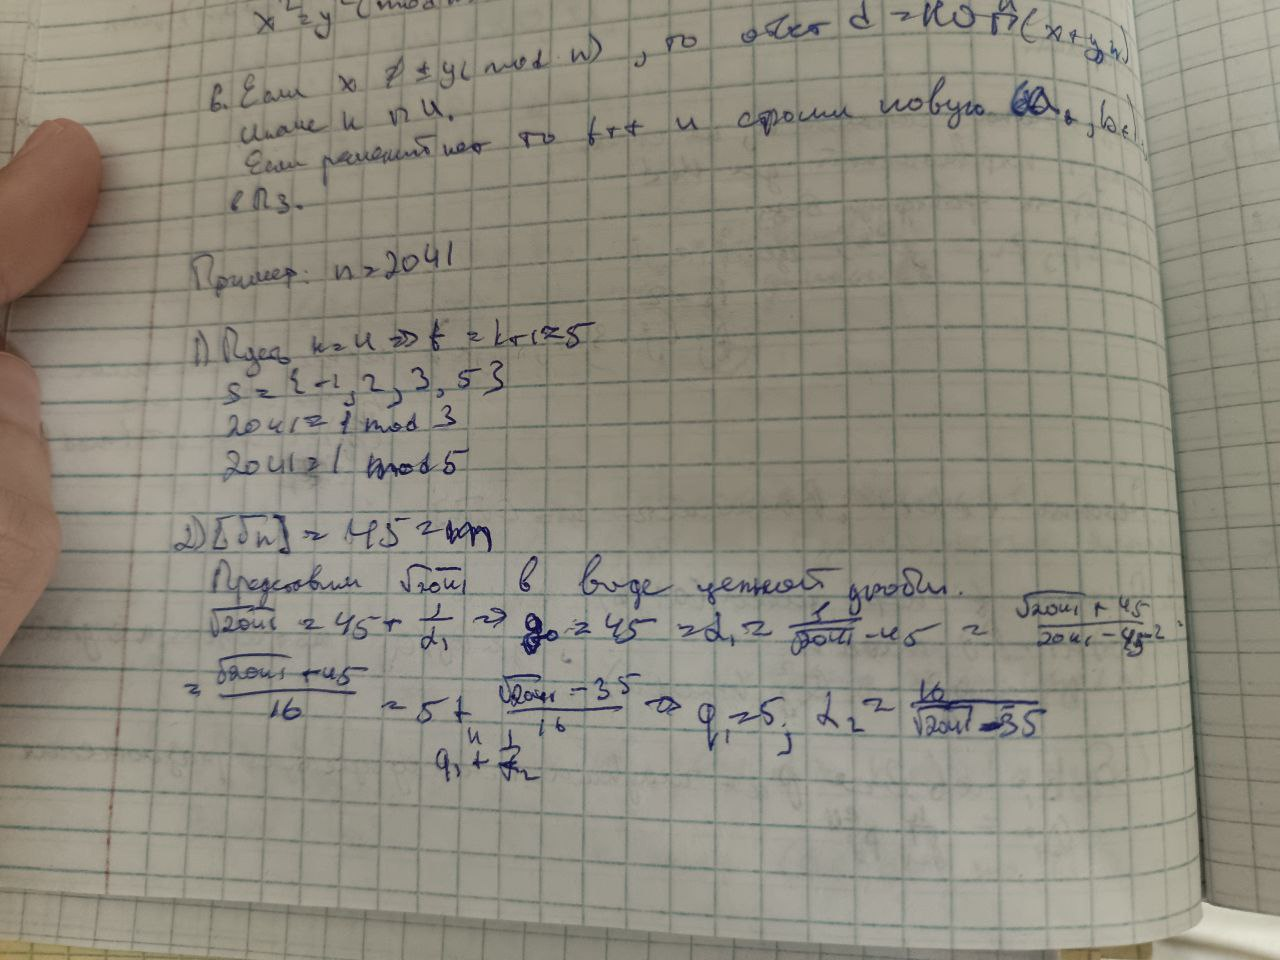 x² = y² (mod n
6. Если x ≢ ± y (mod n), то ответ d = НОД (x+y, n)
иначе к п 4.
Если решений нет то t++ и строим новую (a_t, b_t)
в п3.
Пример: n = 2041
1) Пусть k = 4 => t = k+1 = 5
S = {-1, 2, 3, 5}
2041 = 1 mod 3
2041 = 1 mod 5
2) [√n] = 45 = m
Представим √2041 в виде цепной дроби.
√2041 = 45 + 1/α₁ => q₀ = 45 = α₁ = 1/(√2041 - 45) = (√2041 + 45)/(2041 - 45²) =
= (√2041 + 45)/16 = 5 + (√2041 - 35)/16 => q₁ = 5; α₂ = 16/(√2041 - 35)
q₁ + 1/α₂